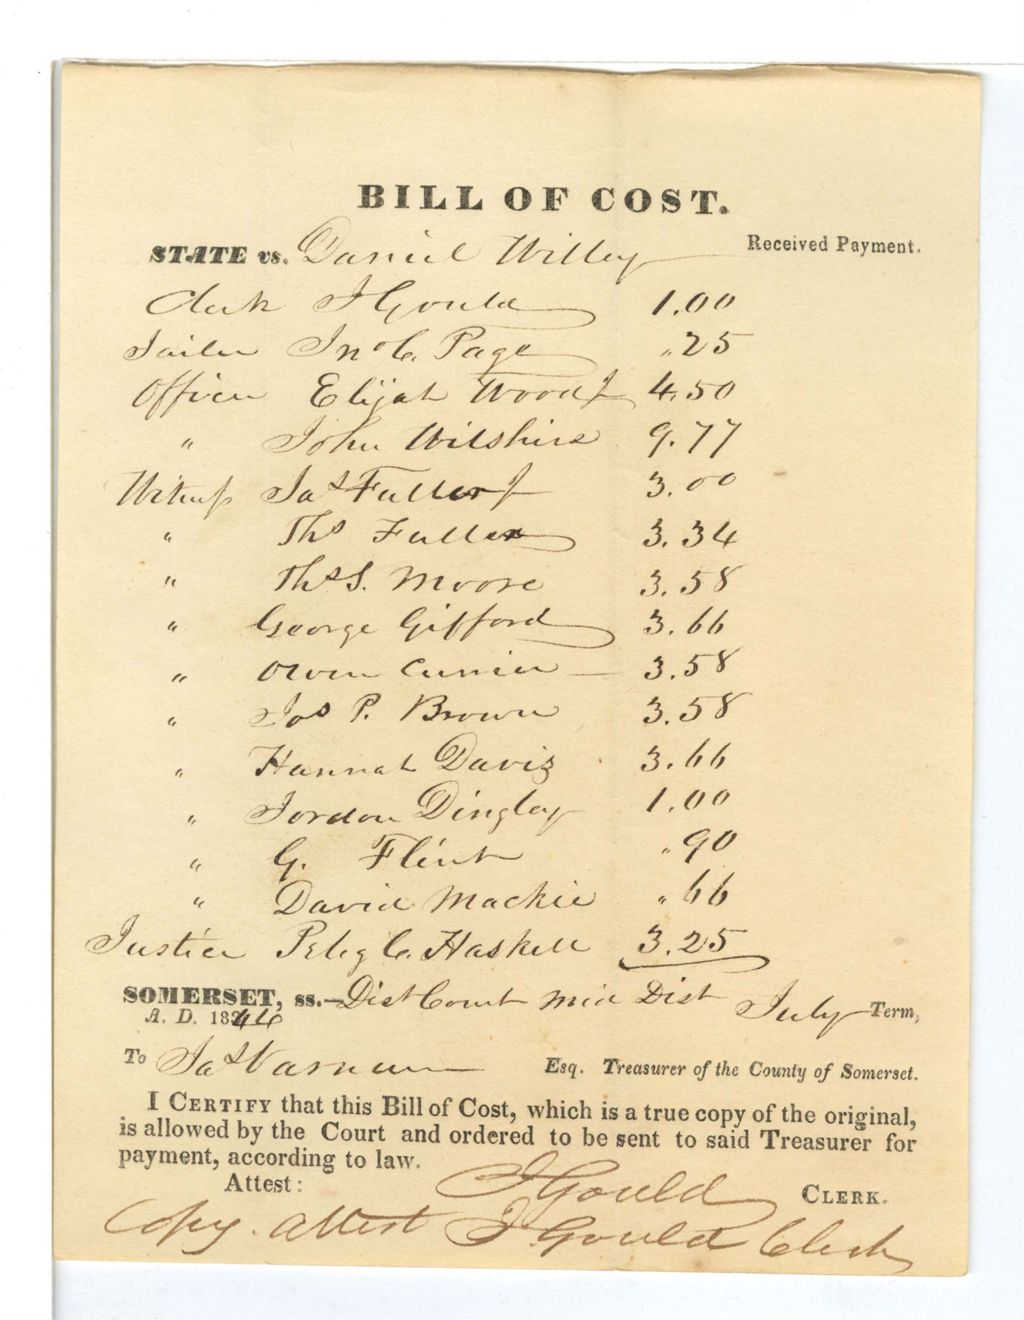 BILL OF COST.
STATE vs. Daniel Willey Received Payment.
Clerk I Gould 1.00
Jailer Jno C. Page .25
Officer Elijah Wood Jr 4.50
" John Wilshire 9.77
Witness Jas Fuller Jr 3.00
" Ths Fuller 3.34
" Ths S. Moore 3.58
" George Gifford 3.66
" Owen Currier 3.58
" Jos P. Brown 3.58
" Hannah Davis 3.66
" Jordon Dingley 1.00
" G. Flint .90
" David Mackie .66
Justice Peleg C. Haskell 3.25
SOMERSET, ss.— Dist Court Mid Dist July Term,
A. D. 1846
To Jas Varnum Esq. Treasurer of the County of Somerset.
I CERTIFY that this Bill of Cost, which is a true copy of the original,
is allowed by the Court and ordered to be sent to said Treasurer for
payment, according to law.
Attest: I Gould CLERK.
Copy. Attest I Gould Clerk